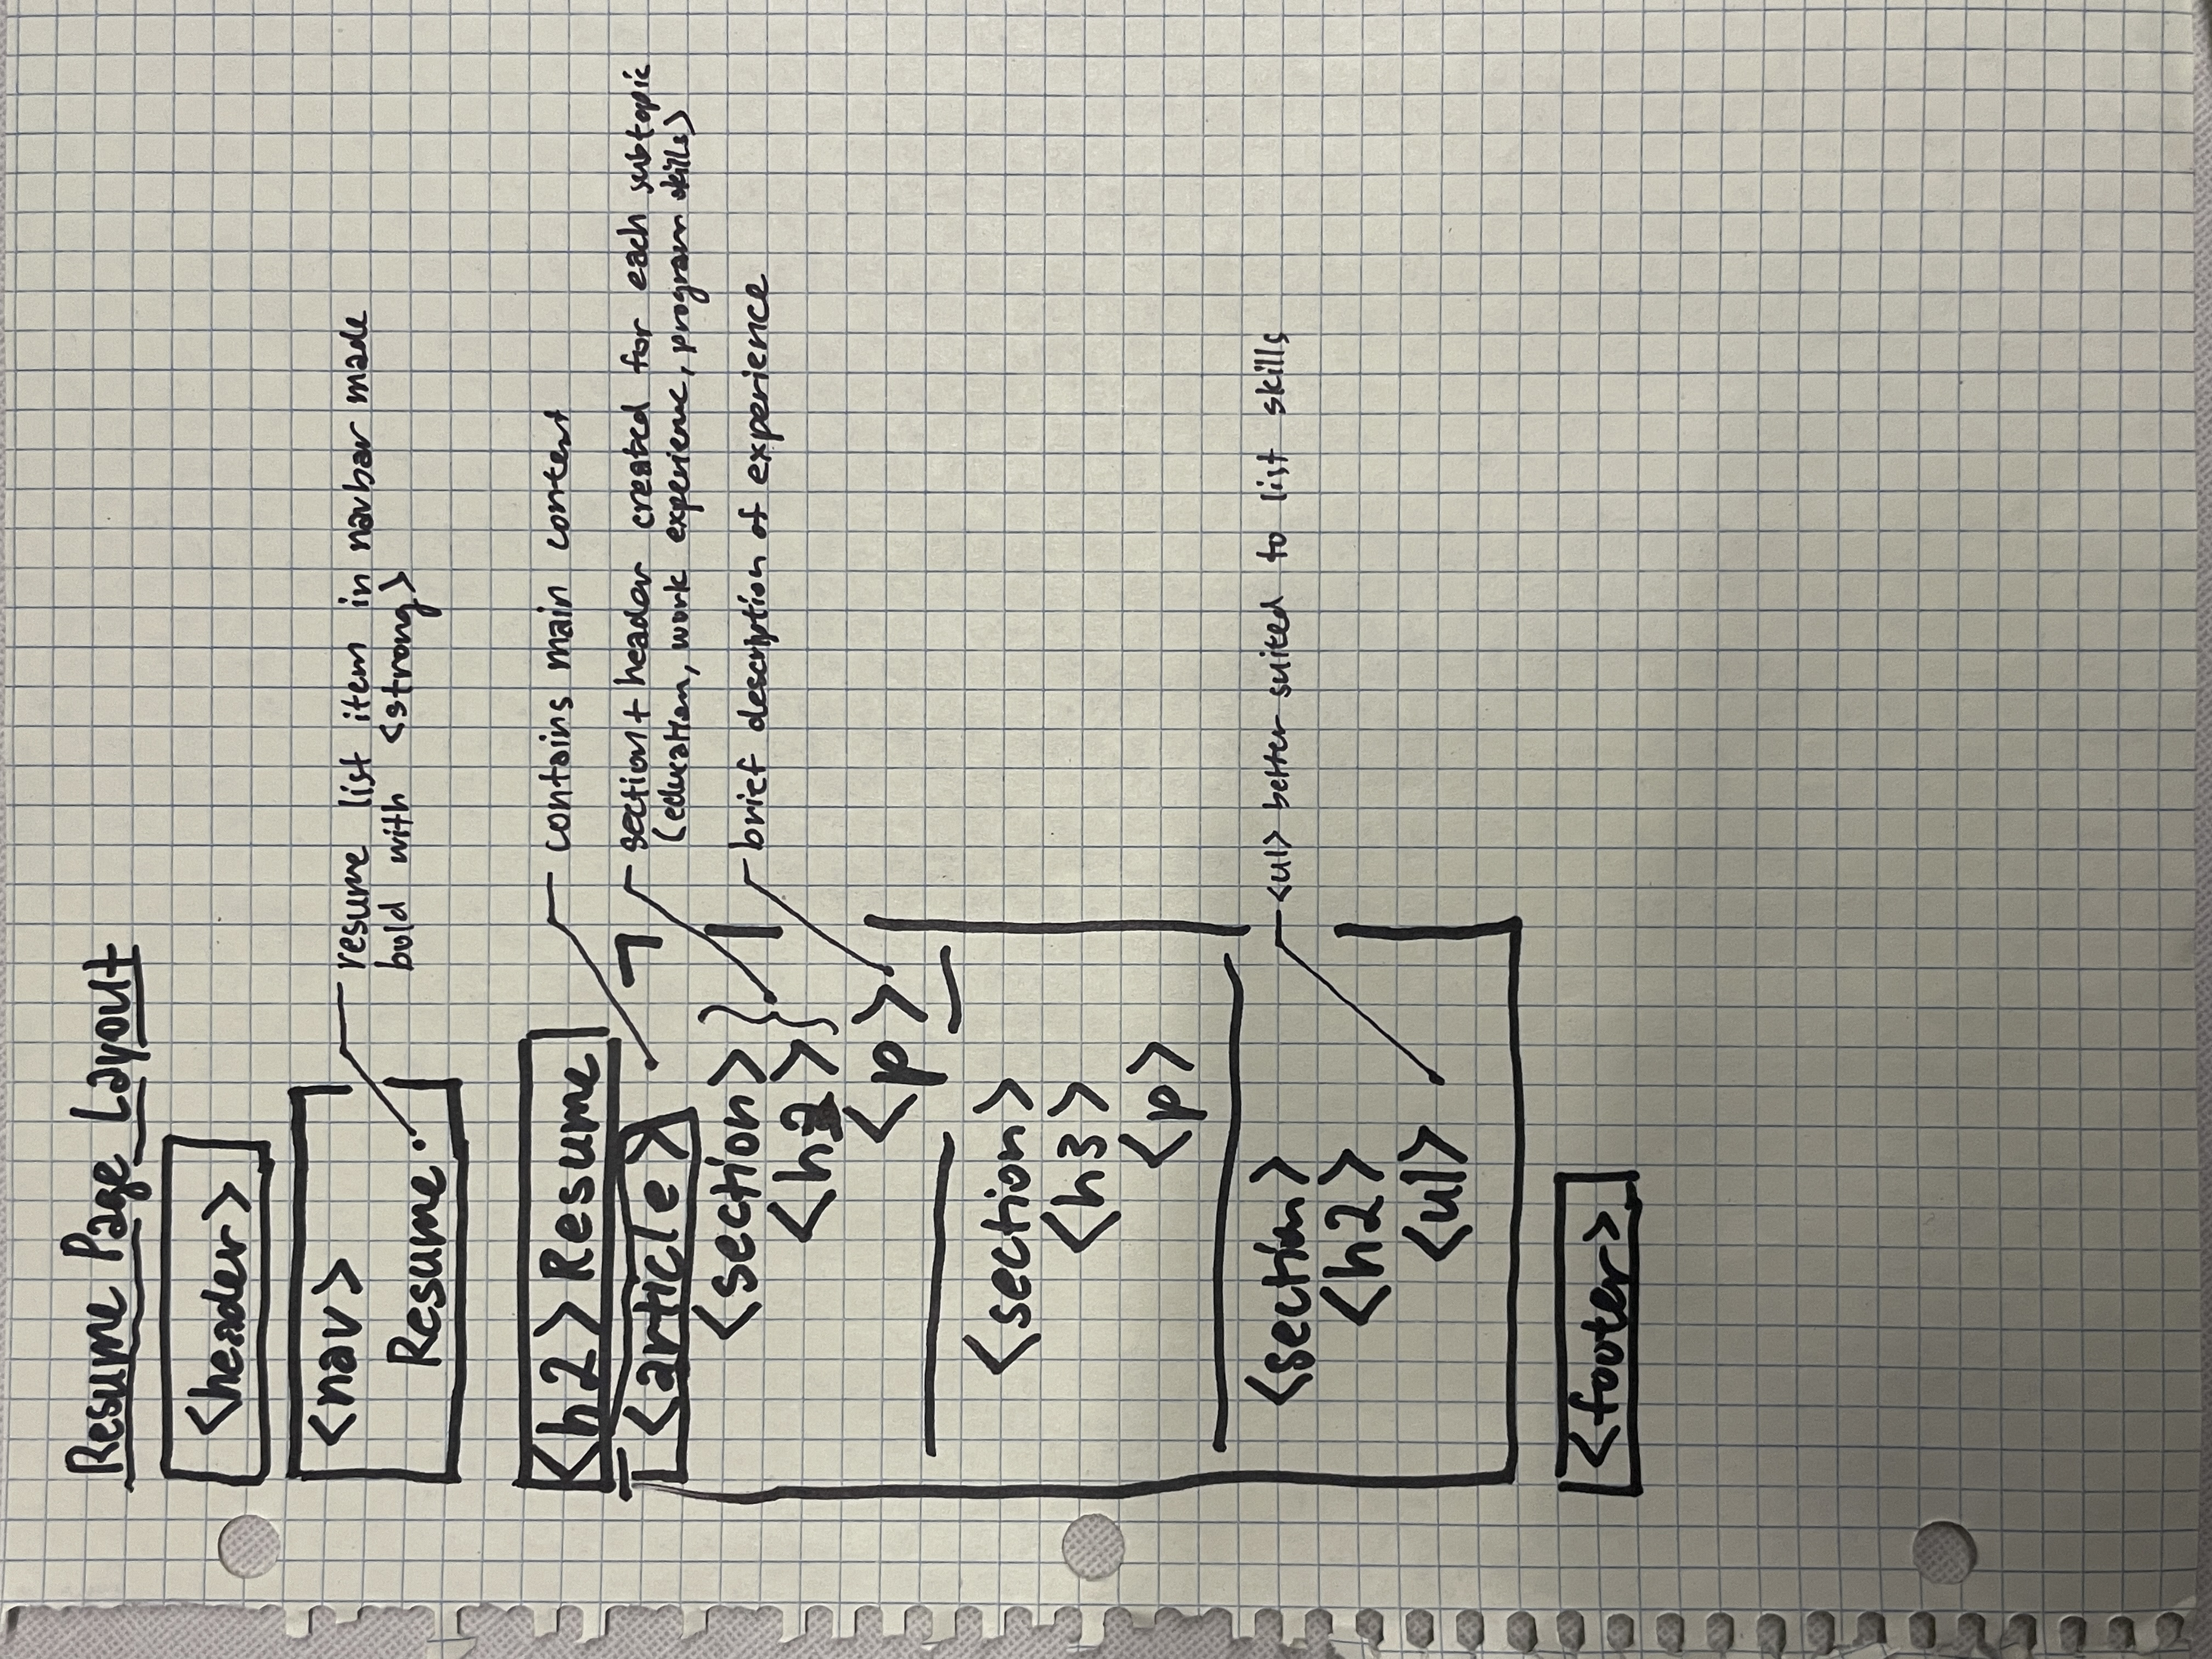 Resume Page Layout
<header>
<nav>
Resume
resume list item in navbar made
bold with <strong>
<h2> Resume
<article>
contains main content
<section>
section + header created for each subtopic
(education, work experience, program skills)
<h3>
<p>
brief description of experience
<section>
<h3>
<p>
<section>
<h2>
<ul>
<ul> better suited to list skills
<footer>